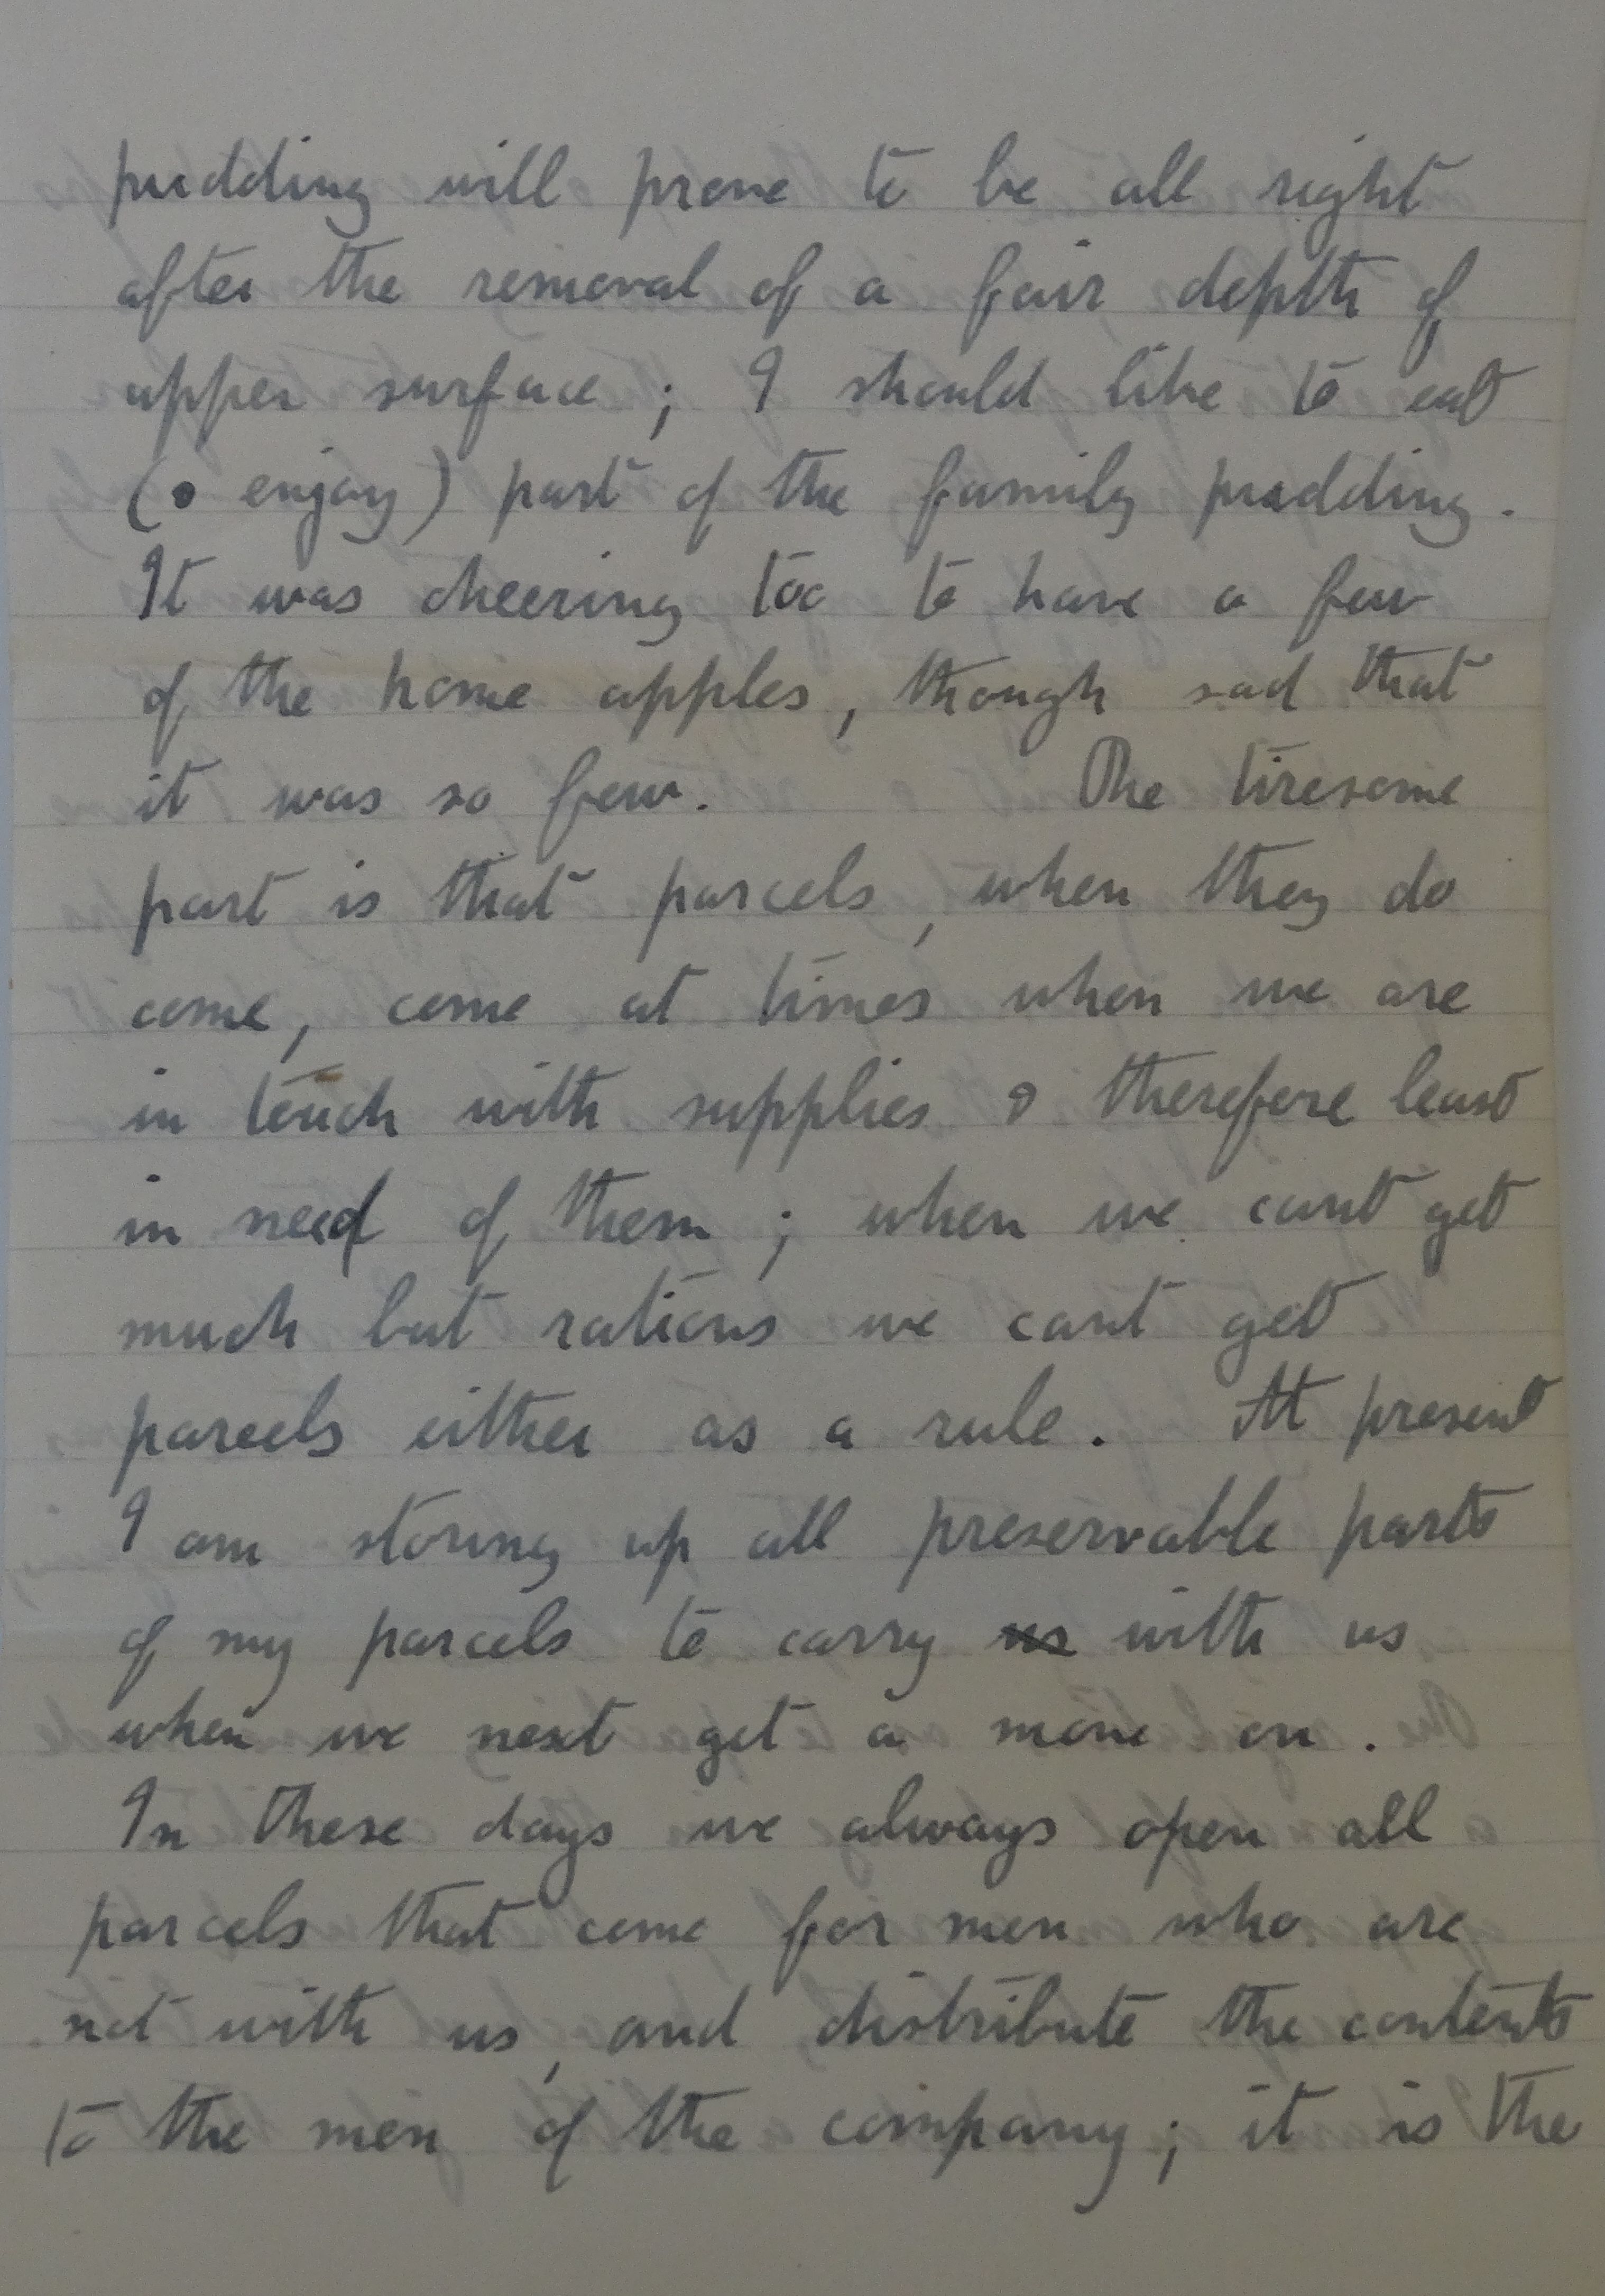 pudding will prove to be all right
after the removal of a fair depth of
upper surface ; I should like to eat
(& enjoy) part of the family pudding.
It was cheering too to have a few
of the home apples, though sad that
it was so few. The tiresome
part is that parcels, when they do
come, come at times when we are
in touch with supplies & therefore least
in need of them ; when we cant get
much but rations we cant get
parcels either as a rule. At present
I am storing up all preservable parts
of my parcels to carry us with us
when we next get a move on.
In these days we always open all
parcels that come for men who are
not with us, and distribute the contents
to the men of the company; it is the